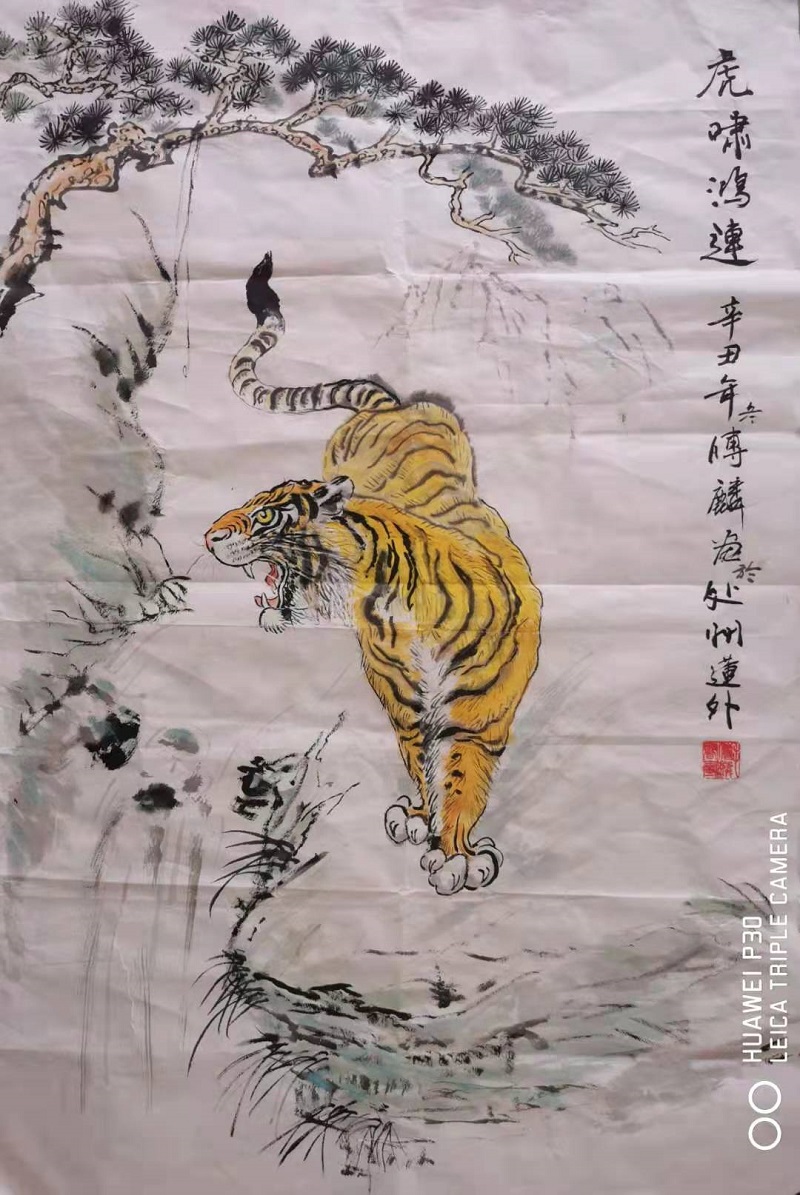 虎啸鸿運
辛丑年冬
麟画於处州蓮外
HUAWEI P30
LEICA TRIPLE CAMERA